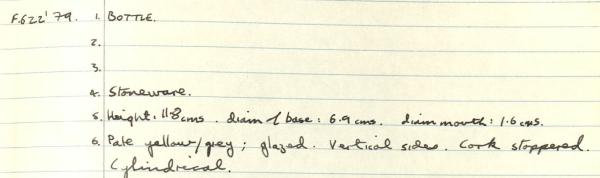 F.622'79. 1. BOTTLE.
2.
3.
4. Stoneware.
5. Height: 11.8 cms. diam of base: 6.9 cms. diam mouth: 1.6 cms.
6. Pale yellow/grey; glazed. Vertical sides. Cork stoppered.
Cylindrical.